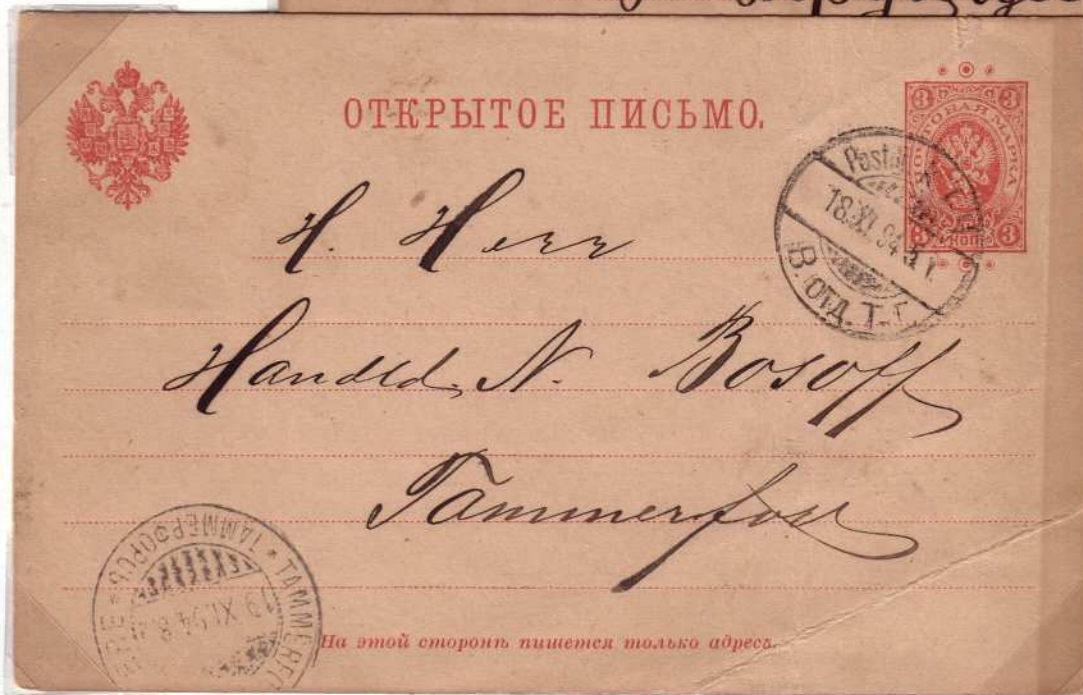 ОТКРЫТОЕ ПИСЬМО.
3 3
ПОЧТОВАЯ МАРКА
3 КОП 3
18.XI.94
В. ОТД. Т. Г.
H. Herr
Handld. N. Bosoff
Tammerfors
ТАММЕРФОРСЪ * TAMMERFO
19.XI.94
На этой сторонѣ пишется только адресъ.